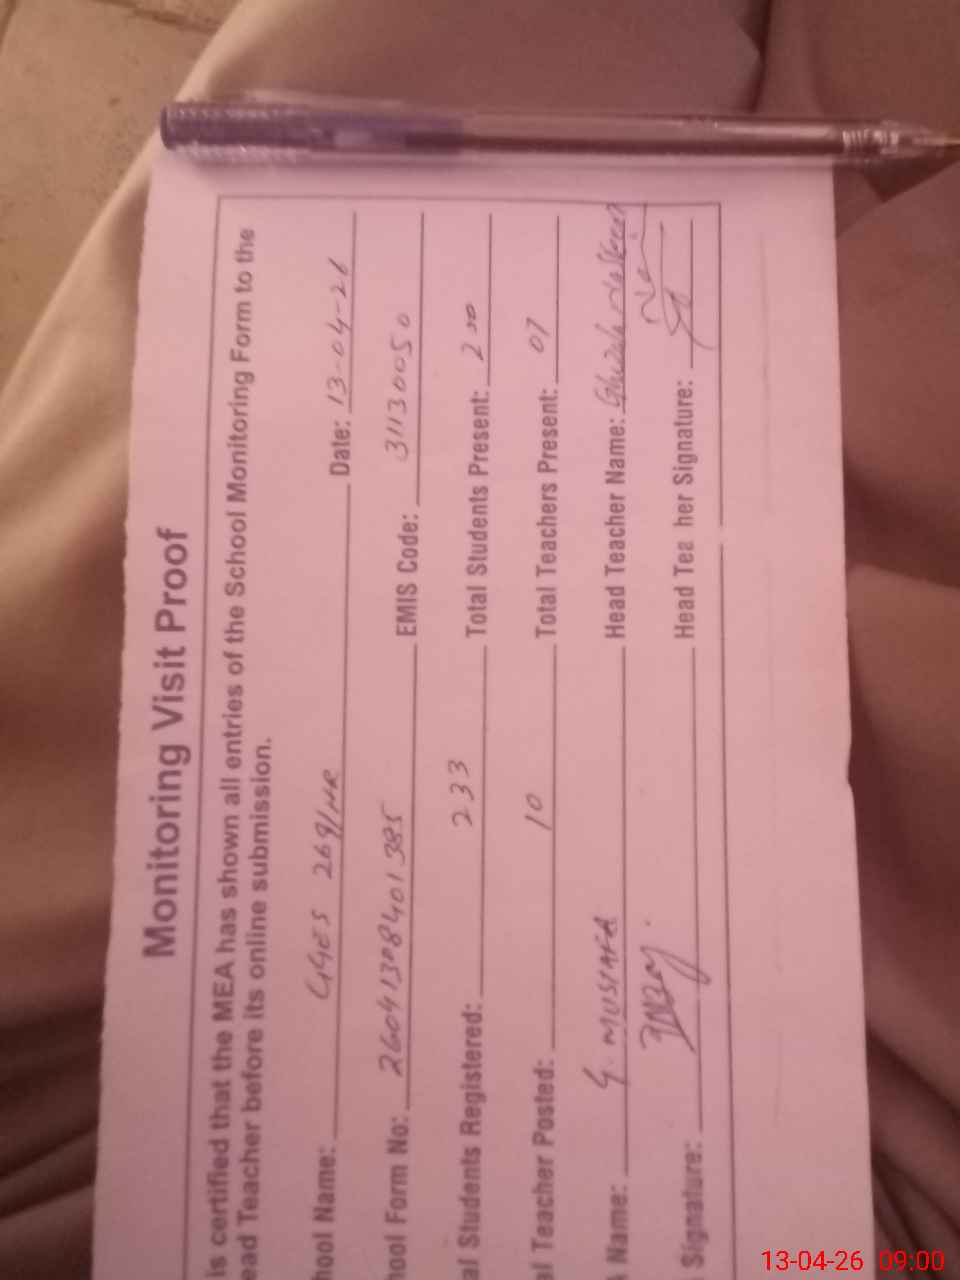 Monitoring Visit Proof
is certified that the MEA has shown all entries of the School Monitoring Form to the
ead Teacher before its online submission.
hool Name: GGES 269/HR Date: 13-04-26
hool Form No: 26041308401385 EMIS Code: 31130050
al Students Registered: 233 Total Students Present: 200
al Teacher Posted: 10 Total Teachers Present: 07
Name: G. MUSTAFA Head Teacher Name: Ghizala
Signature: Head Tea her Signature:
13-04-26 09:00